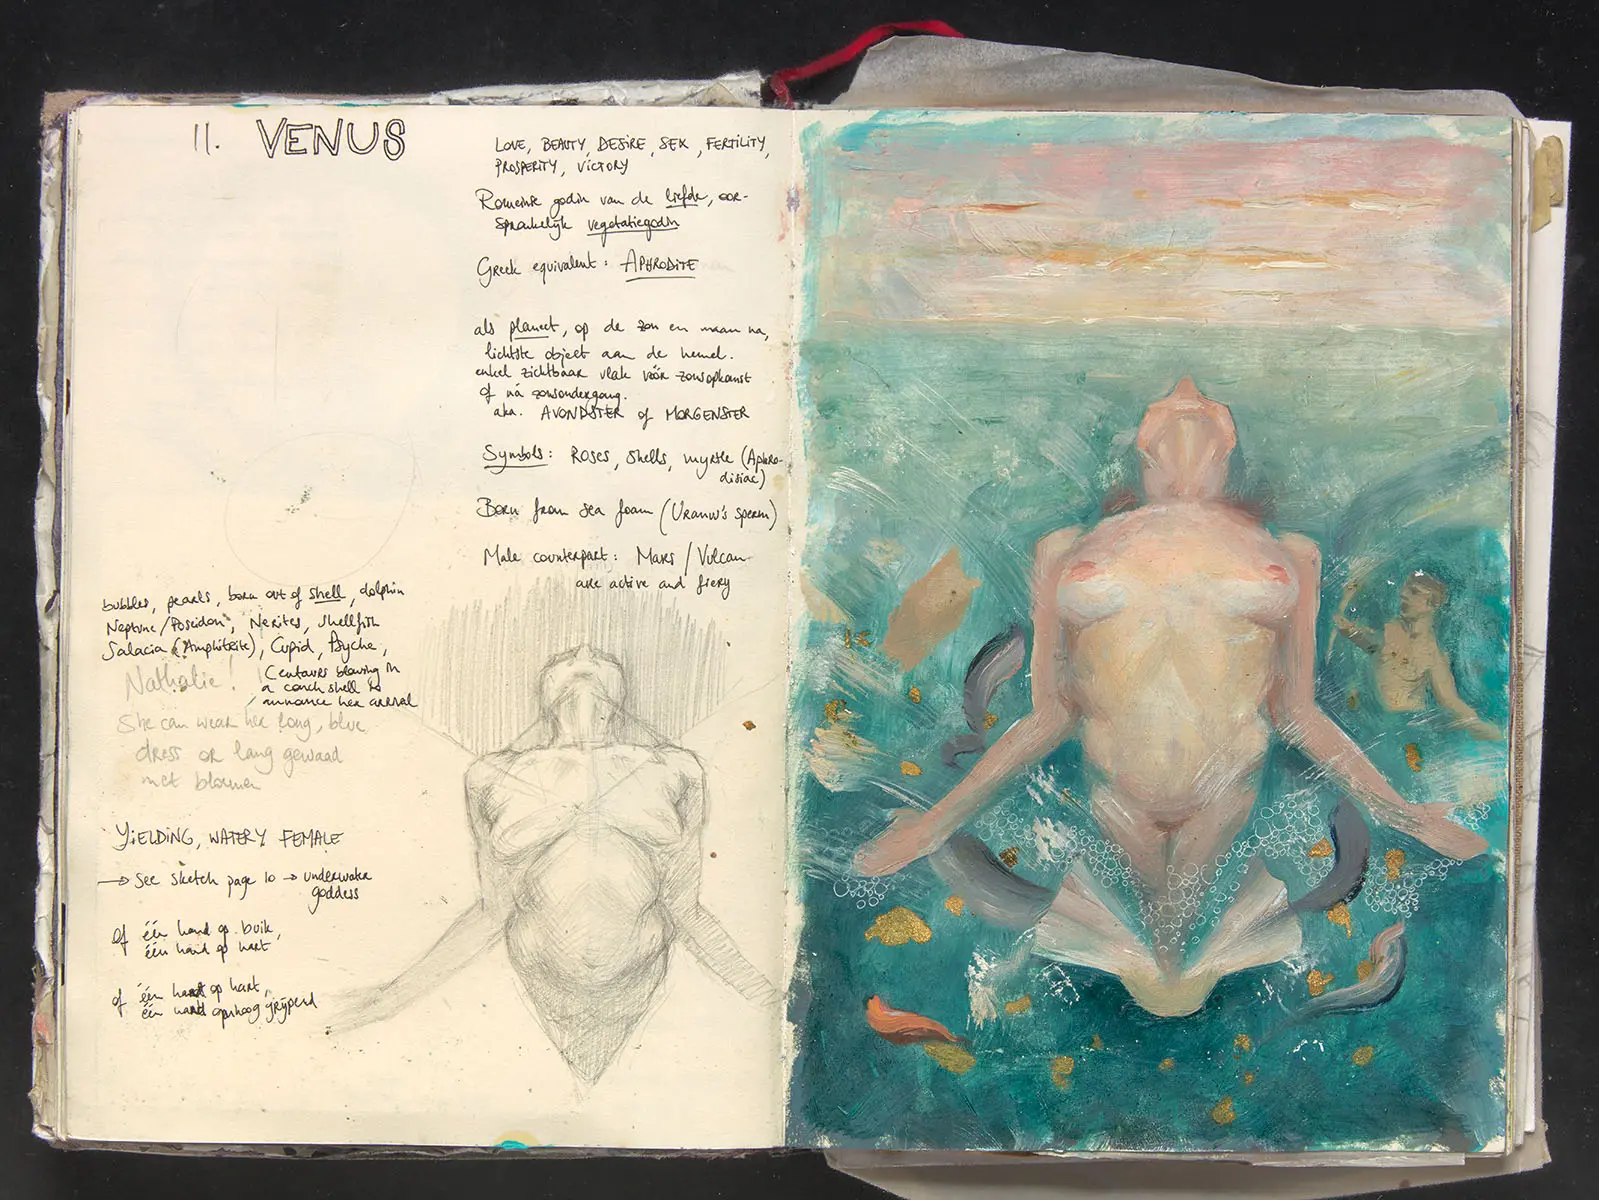 11. VENUS
LOVE, BEAUTY, DESIRE, SEX, FERTILITY,
PROSPERITY, VICTORY
Romeinse godin van de liefde, oor-
spronkelijk vegetatiegodin
Greek equivalent: APHRODITE
als planeet, op de zon en maan na,
lichtste object aan de hemel.
enkel zichtbaar vlak vóór zonsopkomst
of ná zonsondergang.
aka. AVONDSTER of MORGENSTER
Symbols: Roses, shells, myrtle (Aphro-
disiac)
Born from sea foam (Uranus's sperm)
Male counterpart: Mars / Vulcan
are active and fiery
bubbles, pearls, born out of shell, dolphin
Neptune/Poseidon, Nerites, shellfish
Salacia (Amphitrite), Cupid, Psyche,
Nathalie!
Centaurs blowing in
a conch shell to
annonce her arrival
She can wear her long, blue
dress or lang gewaad
met bloemen
YIELDING, WATERY FEMALE
→ See sketch page 10 → underwater
goddess
of één hand op buik,
één hand op hart
of één hand op hart,
één hand omhoog grijpend